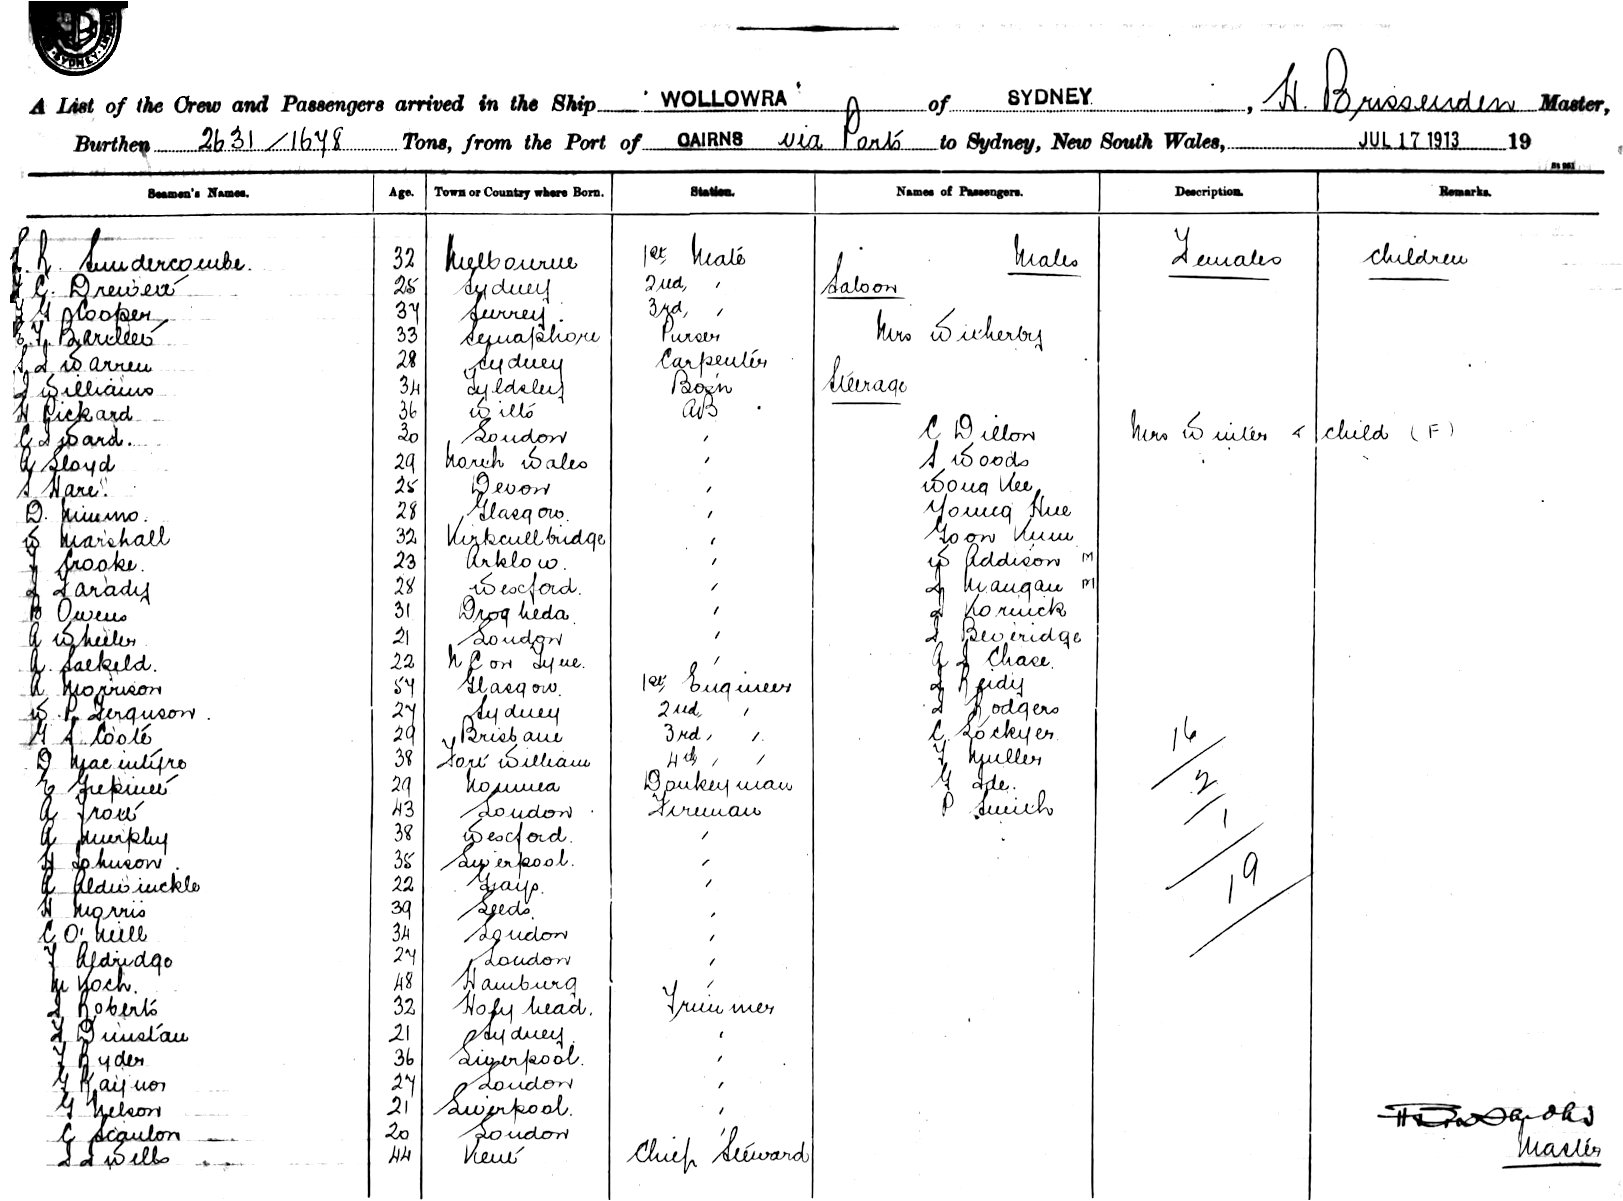 SYDNEY
A List of the Crew and Passengers arrived in the Ship 'WOLLOWRA' of SYDNEY, H. Brissenden Master,
Burthen 2631/1678 Tons, from the Port of CAIRNS via Ports to Sydney, New South Wales, JUL 17 1913 19
Seamen's Names. Age. Town or Country where Born. Station. Names of Passengers. Description. Remarks.
Sundercombe. 32 Melbourne 1st Mate Males Females Children
C. Drewett 25 Sydney 2nd, ' Saloon
G Cooper 37 Surrey. 3rd, '
Bartlett 33 Semaphore Purser Mrs Witherby
Warren 28 Sydney Carpenter
J Williams 34 Tyldsley Bosn Steerage
H Pickard 36 Wilts AB
C J Ward. 20 London ' C Dillon Mrs Winter & child (F)
A Lloyd 29 North Wales ' S Woods
S Hare. 25 Devon ' Wong Kee
D. Nimmo. 28 Glasgow. ' Young Hue
W Marshall 32 Kirkcullbridge ' Goon Kum
J Crooke. 23 Arklow. ' W Addison M
J Farady 28 Wexford. ' J Mangan M
B Owens 31 Drogheda. ' J Kornick
A Wheeler 21 London ' J Beveridge
A. Salkeld. 22 N C on Tyne. ' A J Chase.
A Morrison 54 Glasgow. 1st, Engineer J Reidy
W P Ferguson. 27 Sydney 2nd, ' J Rodgers
G S Coote 29 Brisbane 3rd, ' C Lockyer 16
D Macintyre 38 Fort William 4th, ' F Muller
E Grepinet 29 Noumea Donkeyman G Ide. 2
A Trott 43 London Fireman P Smith 1
A Murphy 38 Wexford. '
H Johnson 35 Liverpool. ' 19
A Aldwinckle 22 Grays. '
H Morris 39 Leeds. '
C O'Neill 34 London '
F Aldridge 27 London '
M Koch. 48 Hamburg '
J Roberts 32 Holyhead. Trimmer
J Dunstan 21 Sydney '
F Ryder 36 Liverpool. '
G Raynor 27 London '
G Nelson 21 Liverpool. '
C Scanlon 20 London '
J J Wells 44 Kent Chief Steward
Master